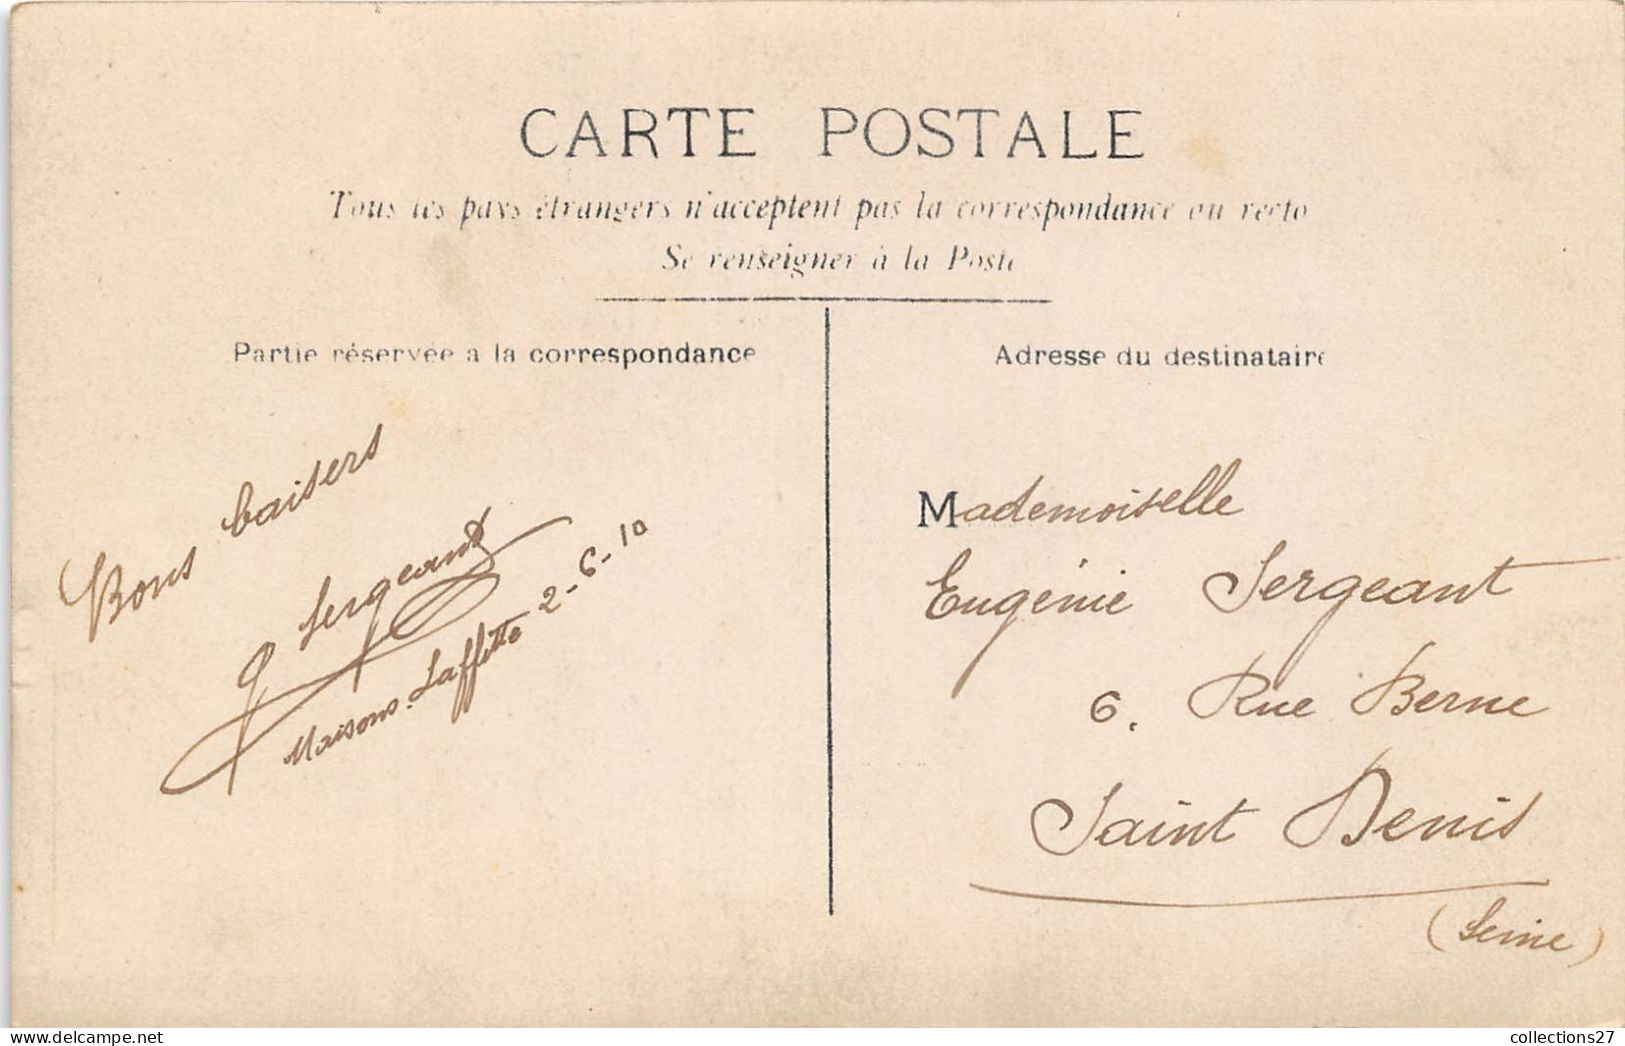 CARTE POSTALE
Tous les pays étrangers n'acceptent pas la correspondance au recto
Se renseigner à la Poste
Partie réservée a la correspondance
Adresse du destinataire
Bons baisers
Sergeant
Maisons-Laffitte 2-6-10
Mademoiselle
Eugénie Sergeant
6. Rue Berne
Saint Denis
(Seine)
collections27